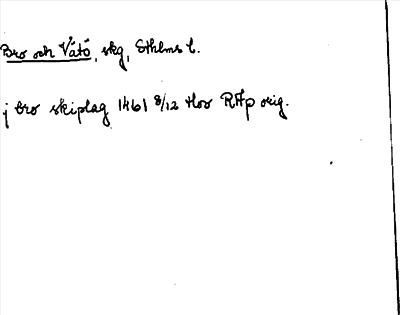 Bro och Vätö, skg, Sthlms l.
j bro skiplag 1461 8/12 Hoo RAp orig.